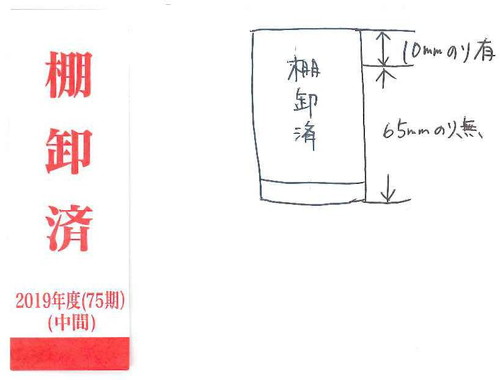 棚卸済
2019年度(75期)
(中間)
棚卸済
10mmのり有
65mmのり無